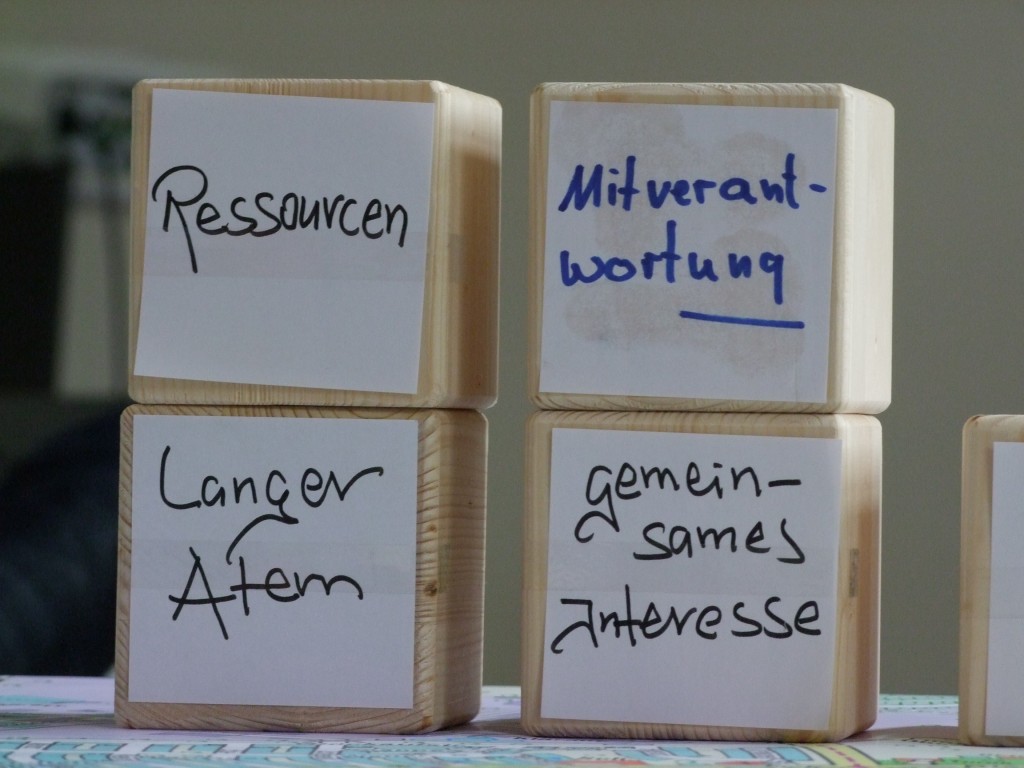 Ressourcen
Mitverant-
wortung
Langer
Atem
gemein-
sames
Interesse